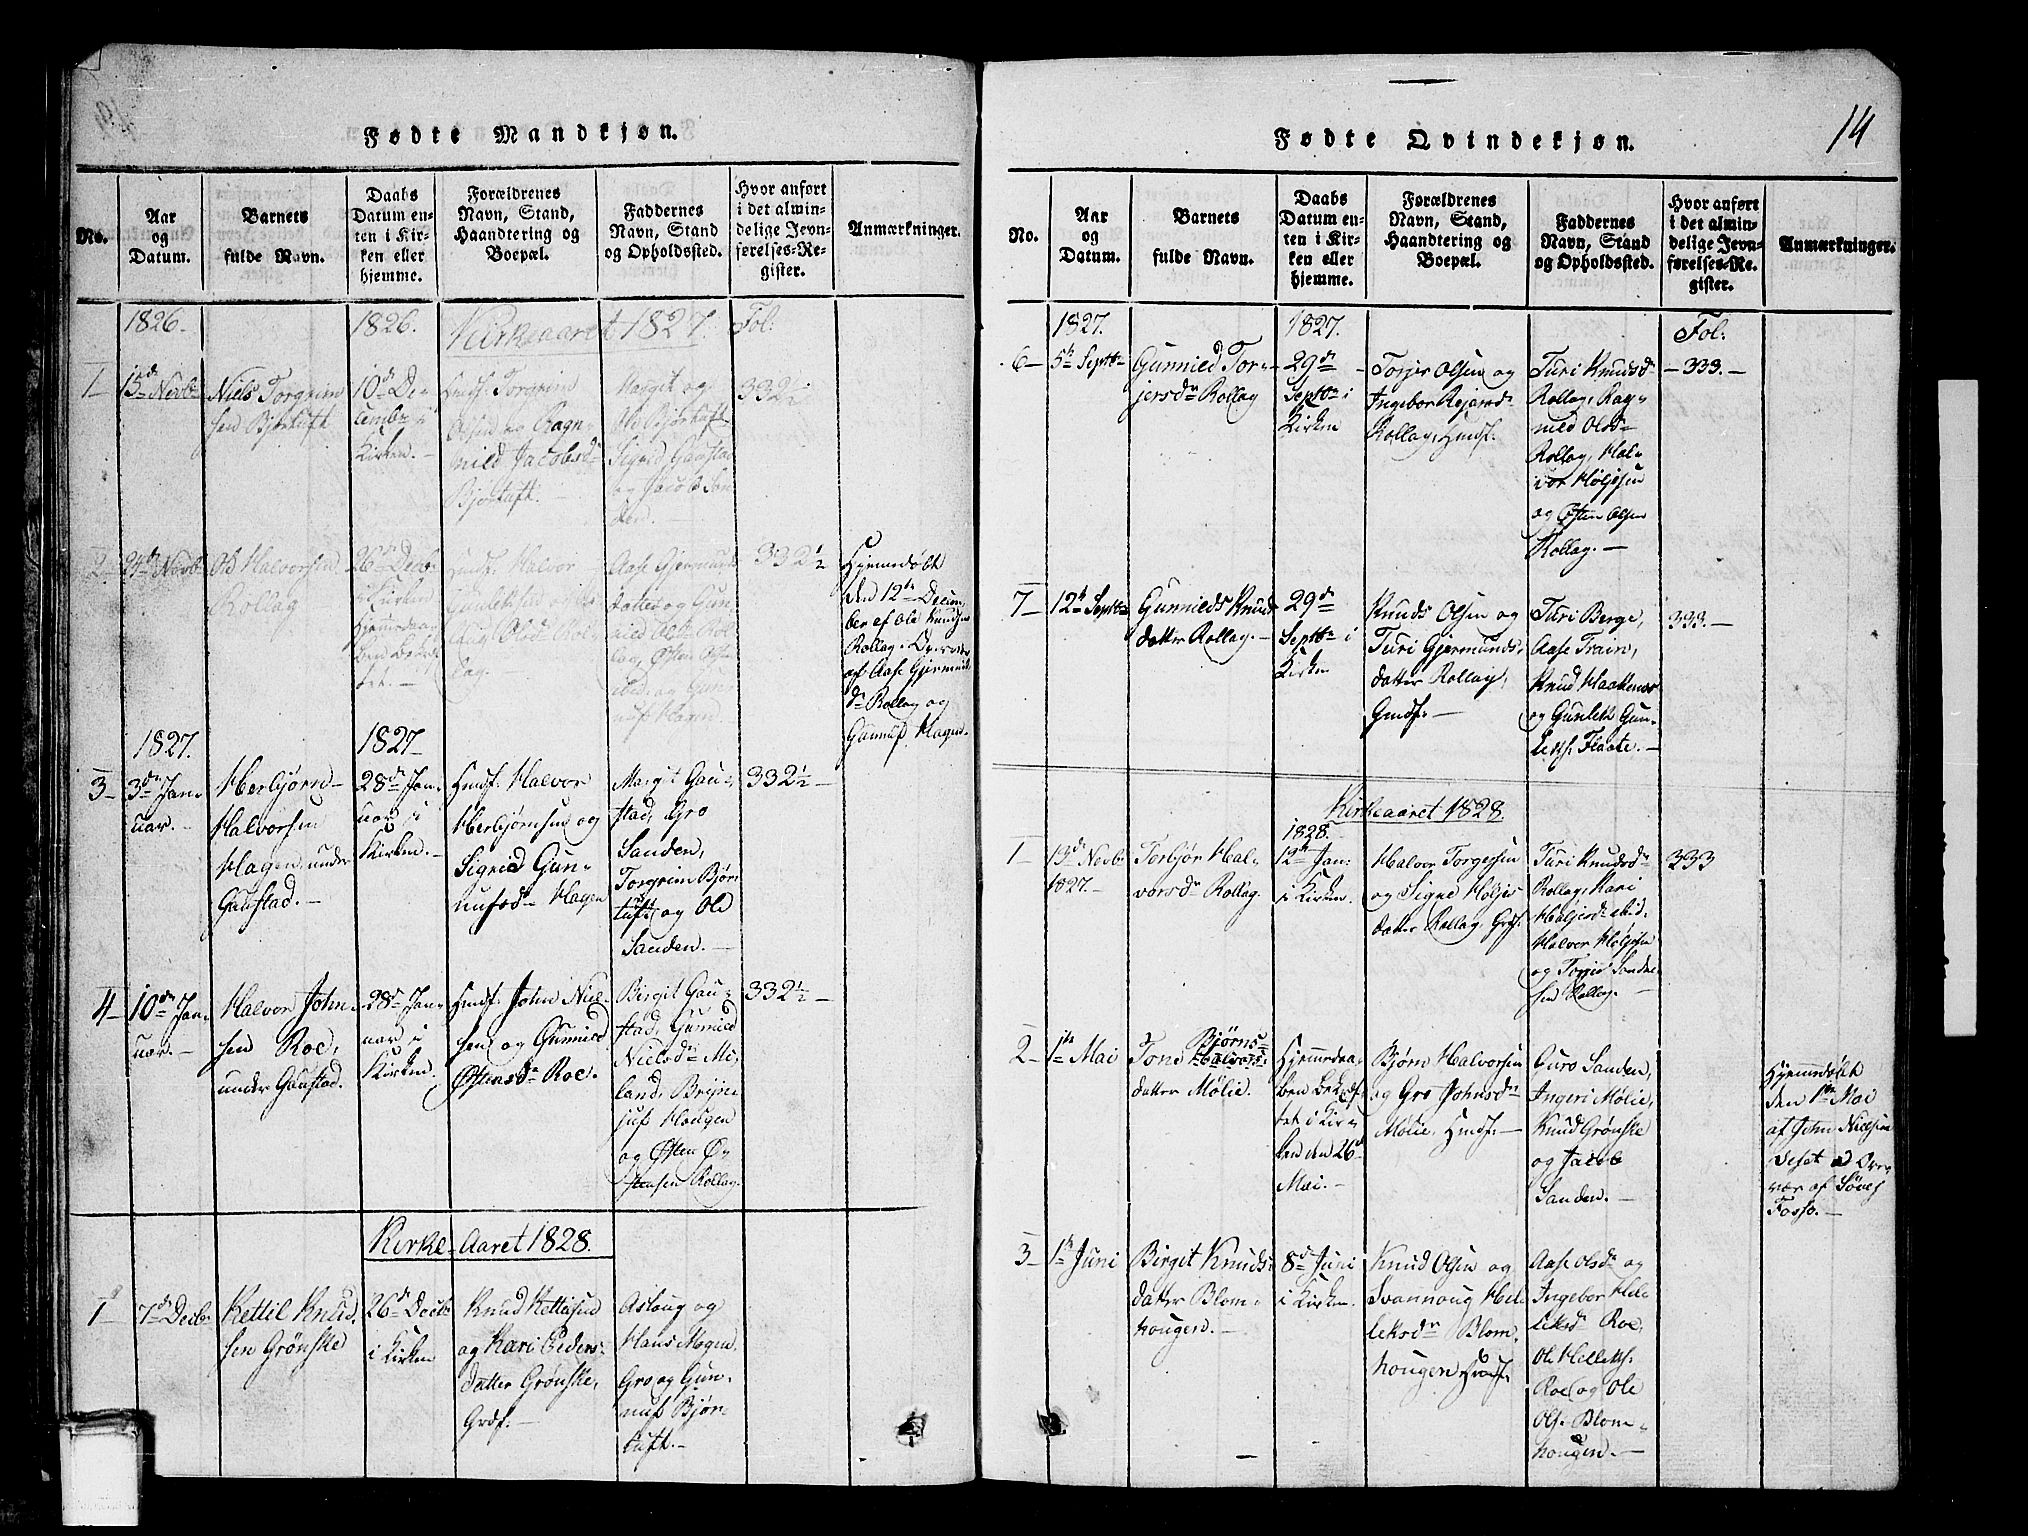 Fødte Mandkjøn.
No.
Aar
og
Datum.
Barnets
fulde Navn.
Daabs
Datum en-
ten i Kir-
ken eller
hjemme.
Forældrenes
Navn, Stand,
Haandtering og
Boepæl.
Faddernes
Navn, Stand
og Opholdssted.
Hvor anført
i det almin-
delige Jevn-
førelses-Re-
gister.
Anmærkninger.
1826.
1826.
Kirkeaaret 1827.
Fol:
1
15de Novbr
Niels Torgrim
sen Bjørtuft
10de De-
cembr i
Kirken.
Huusf. Torgrim
Olsen og Ragn-
nild Jacobsdr
Bjørtuft.
Margit og
Ole Bjørtuft
Sigrid Gaustad
og Jacob San
den.
332½
2
24de Novbr
Ole Halvorsen
Rollag
26de Decb.
i Kirken
Hjemmedaa-
ben bekræf-
tet.
Huusf. Halvor
Rol-
lag.
Aase Gjermunds
datter og Gun-
nild Olsdr Rol-
lag, Østen Ols-
ibid. og Gun-
nuf Hagen
332½
Hjemmedøbt
den 12te Decem
ber af Ole Knudsen
Rollag. Overvær
af Aase Gjermund
dr Rollag og
Gunnuf Hagen.
1827.
1827
3
3de Jan-
uar.
Herbjørn
Halvorsen
Hagen, under
Gaustad.
28de Jan-
uar i
Kirken.
Huusf. Halvor
Herbjørnsen og
Sigrid Gun-
nufsdr Hagen
Margit Gau-
stad, Gro
Sanden,
Torgrim Bjør-
tuft, og Ole
Sanden.
332½
4
10de Jan-
uar.
Halvor John-
sen Roe,
under Gaustad.
28de Jan-
uar i
Kirken.
Huusf. John Niel-
sen og Gunnild
Østensdr Roe.
Birgit Gau-
stad, Gunnild
Nielsdr Mei-
land, Brynn
juf Hougen
og Østen Ø-
stensen Rollag.
332½
Kirke-Aaret 1828.
1
7de Decbr
Kettil Knud-
sen Grønske
26de Decbr
i Kirken
Knud Kettilsen
og Kari Peders-
datter Grønske,
Grdf.
Aslaug og
Hans Mogen
Gro og Gun-
nuf Bjør-
tuft.
Fødte Qvindekjøn.
14
No.
Aar
og
Datum.
Barnets
fulde Navn.
Daabs
Datum en-
ten i Kir-
ken eller
hjemme.
Forældrenes
Navn, Stand,
Haandtering og
Boepæl.
Faddernes
Navn, Stand
og Opholdssted.
Hvor anført
i det almin-
delige Jevn-
førelses-Re-
gister.
Anmærkninger.
1827.
1827.
Fol:
6
5te Septbr
Gunnild Tor-
jersdr Rollag
29de
Septbr i
Kirken
Torjer Olsen og
Ingebor Rejarsdr
Rollag, Huusf.
Turi Knudsdr
Rollag, Rag-
nild Olsdr
Rollag, Hal-
vor Høljesen
og Østen Olsen
Rollag.
333.
7
12te Septbr
Gunnild Knuds
datter Rollag.
29de
Septbr i
Kirken
Knud Olsen og
Turi Gjermunds-
datter Rollag,
Gmdf.
Turi Berge,
Aase Traen,
Knud Haakensen
og Gunlek Gun-
leks. Flaate.
333.
Kirkeaaret 1828.
1
13de Novbr
1827.
Torbjør Hal-
vorsdr Rollag.
1828.
12te Jan:
i Kirken.
Halvor Torgersen
og Signe Høljes
datter Rollag, Grdf.
Turi Knudsdr
Rollag, Kari
Høljesdr ibid.
Halvor Høljesen
og Torjus Sonde-
sen Rollag.
333
2
1ste Mai
Tone Bjørns-
Halvors-
datter Mølie.
Hjemmedaa-
ben bekræf-
tet i Kir-
ken den 26de
Mai.
Bjørn Halvorsen
og Gro Johnsdr
Mølie, Huusf.
Guro Sanden,
Ingeri Mølie,
Knud Grønske
og Jacob
Sanden.
Hjemmedøbt
den 1ste Mai
af John Nielsen
Veset i Over-
vær af Søver
Fosso.
3
1ste Juni
Birgit Knuds-
datter Blom-
hougen.
8de Juni
i Kirken.
Knud Olsen og
Svannoug Hel-
leksdr Blom-
hougen Huusf.
Aase Olsdr og
Ingebor Hel-
leksdr Roe,
Ole Helleks.
Roe og Ole
Ols. Blom-
hougen.